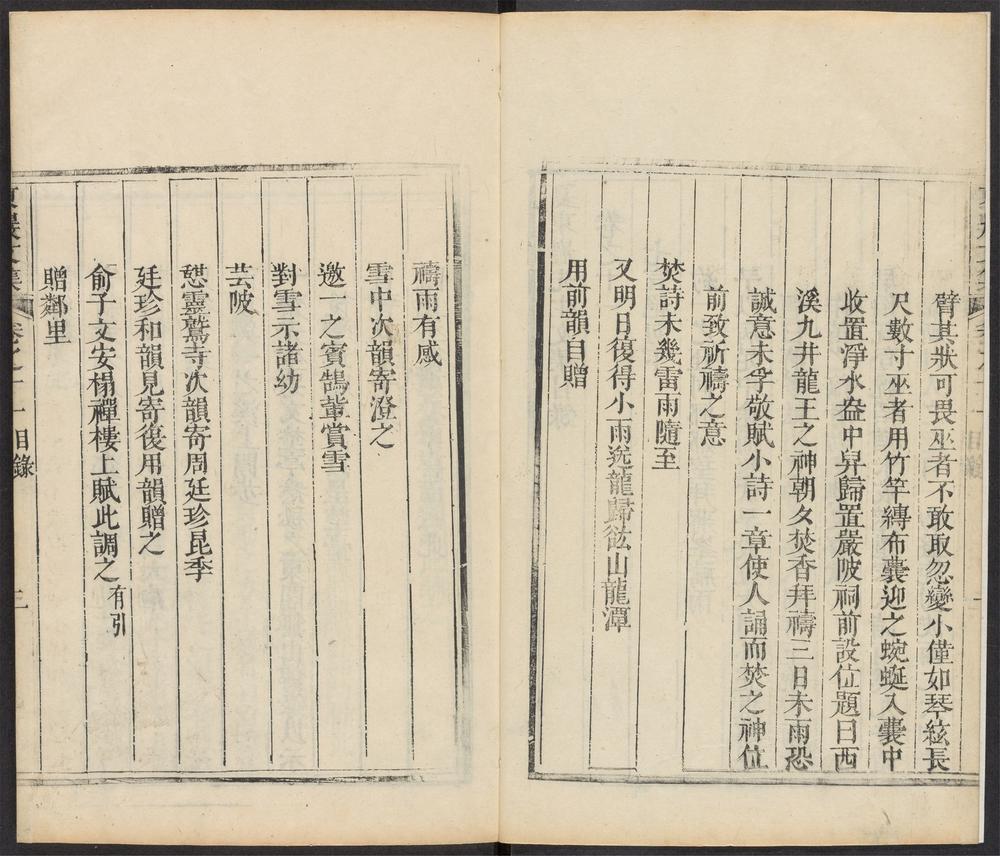 臂其狀可畏巫者不敢取忽變小僅如琴絃長
尺數寸巫者用竹竿縛布囊迎之蜿蜒入囊中
收置淨水盎中舁歸置嚴陂祠前設位題曰西
溪九井龍王之神朝夕焚香拜禱三日未雨恐
誠意未孚敬賦小詩一章使人誦而焚之神位
前致祈禱之意
焚詩未幾雷雨隨至
又明日復得小雨送龍歸䥐山龍潭
用前韻自贈
禱雨有感
雪中次韻寄澄之
邀一之賓鵠輩賞雪
對雪示諸幼
芸陂
憇靈鷲寺次韻寄周廷珍昆季
廷珍和韻見寄復用韻贈之
俞子文安榻禪樓上賦此調之有引
贈鄰里
文集 卷之十一目錄 三